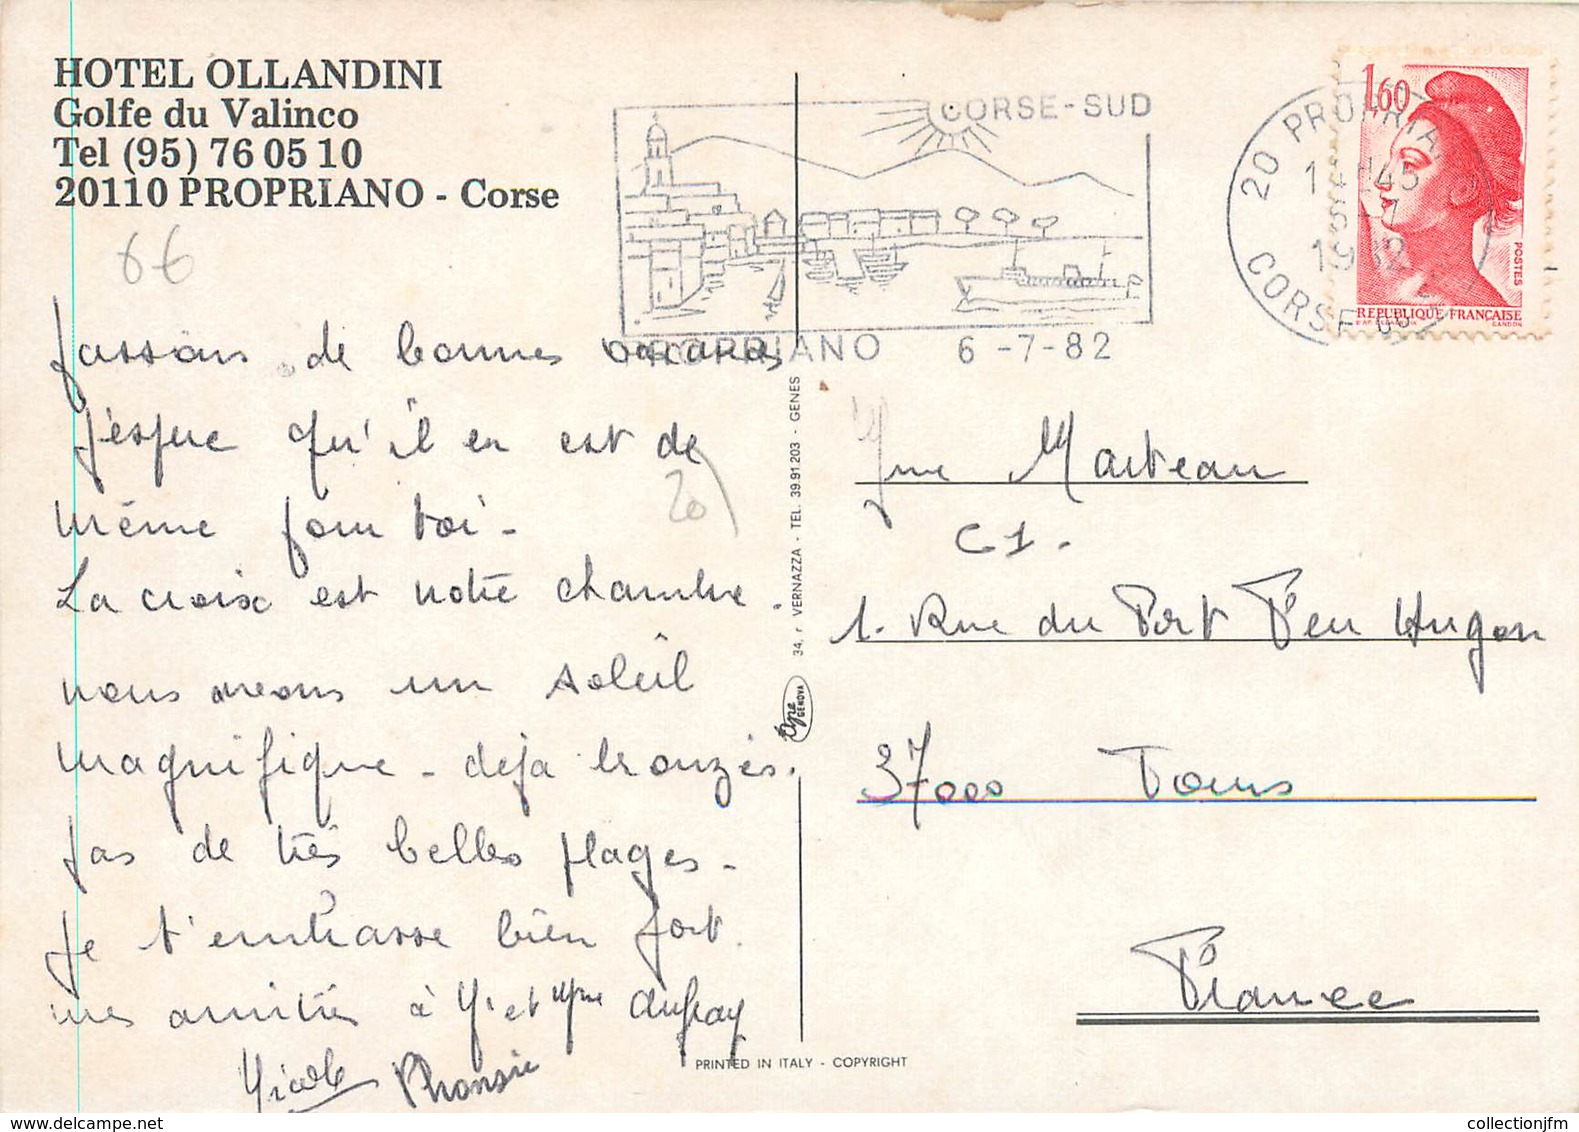 HOTEL OLLANDINI
Golfe du Valinco
Tel (95) 76 05 10
20110 PROPRIANO - Corse
66
passons de bonnes vacances
J'espere qu'il en est de
même pour toi -
La croix est notre chambre.
nous avons un soleil
magnifique - déja bronzés.
pas de très belles plages -
Je t'embrasse bien fort.
mes amitiés à Mr et Mme
Nicole
CORSE-SUD
PROPRIANO 6 -7-82
20 PROPRIANO
CORSE SUD
1982
1,60
POSTES
REPUBLIQUE FRANÇAISE
GANDON
20
34, r VERNAZZA - TEL. 39.91.203 - GENES
GENOVA
Mme Marteau
C1.
1. Rue du Port Feu Hugon
37000 Tours
France
PRINTED IN ITALY - COPYRIGHT
collectionjfm